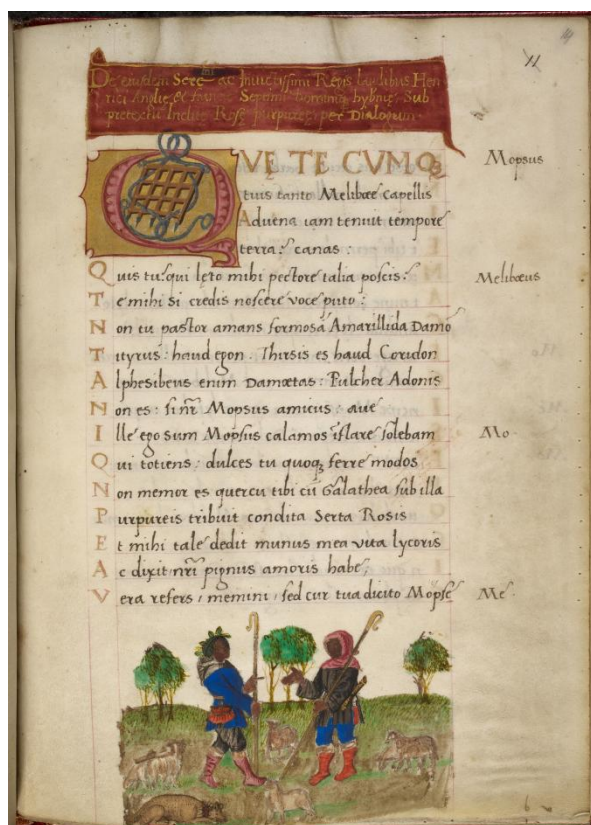 De eiusdem Sere^mi ac Invictissimi Regis laudibus Hen
rici Anglie & Septimi Sub
pretextu Inclite Rose purpuree; per Dialogum
11
QVĘ TE CVMQ3 Mopsus
tuis tanto Melibœe capellis
Aduena iam tenuit tempore
terra? canas:
Quis tu? qui lęto mihi pectore talia poscis? Melibœus
Te mihi si credis noscere voce puto:
Non tu pastor amans formosā Amarillida Damō
Tityrus: haud egon. Thirsis es haud Coridon
Alphesibeus enim Damœtas: Pulcher Adonis
Non es: si nr̄ Mopsus amicus: aue
Ille ego sum Mopsus calamos īflare solebam Mo.
Qui totiens: dulces tu quoq3 ferre modos
Non memor es quercu tibi cū Galathea sub illa
Purpureis tribuit condita Serta Rosis
Et mihi tale dedit munus mea vita lycoris
Ac dixit nr̄i pignus amoris habe,
Vera refers, memini, sed cur tua dicito Mopse Me.